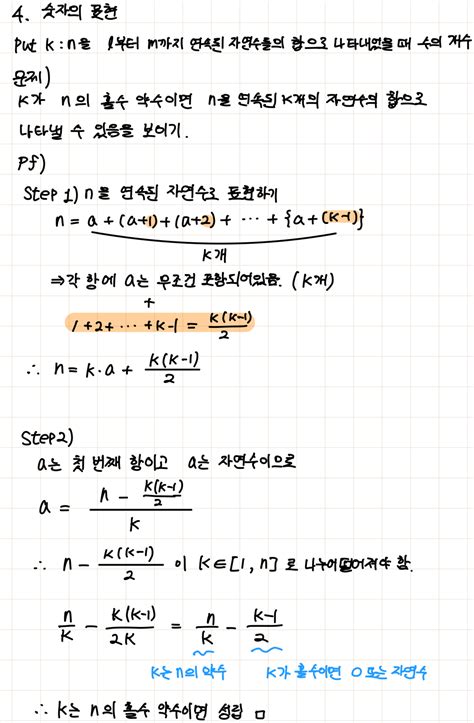 4. 숫자의 표현
Put k : n을 l부터 m까지 연속된 자연수들의 합으로 나타내었을 때 수의 개수
문제)
k가 n의 홀수 약수이면 n을 연속된 k개의 자연수의 합으로
나타낼 수 있음을 보이기.
Pf)
Step 1) n을 연속된 자연수로 표현하기
n = a + (a+1) + (a+2) + ⋯ + {a + (k-1)}
k개
⇒ 각 항에 a는 무조건 포함되어있음. (k개)
+
1+2+ ⋯ +k-1 = k(k-1)/2
∴ n = k·a + k(k-1)/2
Step2)
a는 첫 번째 항이고 a는 자연수이므로
a = (n - k(k-1)/2) / k
∴ n - k(k-1)/2 이 k∈[1, n] 로 나누어떨어져야 함.
n/k - k(k-1)/2k = n/k - (k-1)/2
k는 n의 약수 k가 홀수이면 0 또는 자연수
∴ k는 n의 홀수 약수이면 성립 □